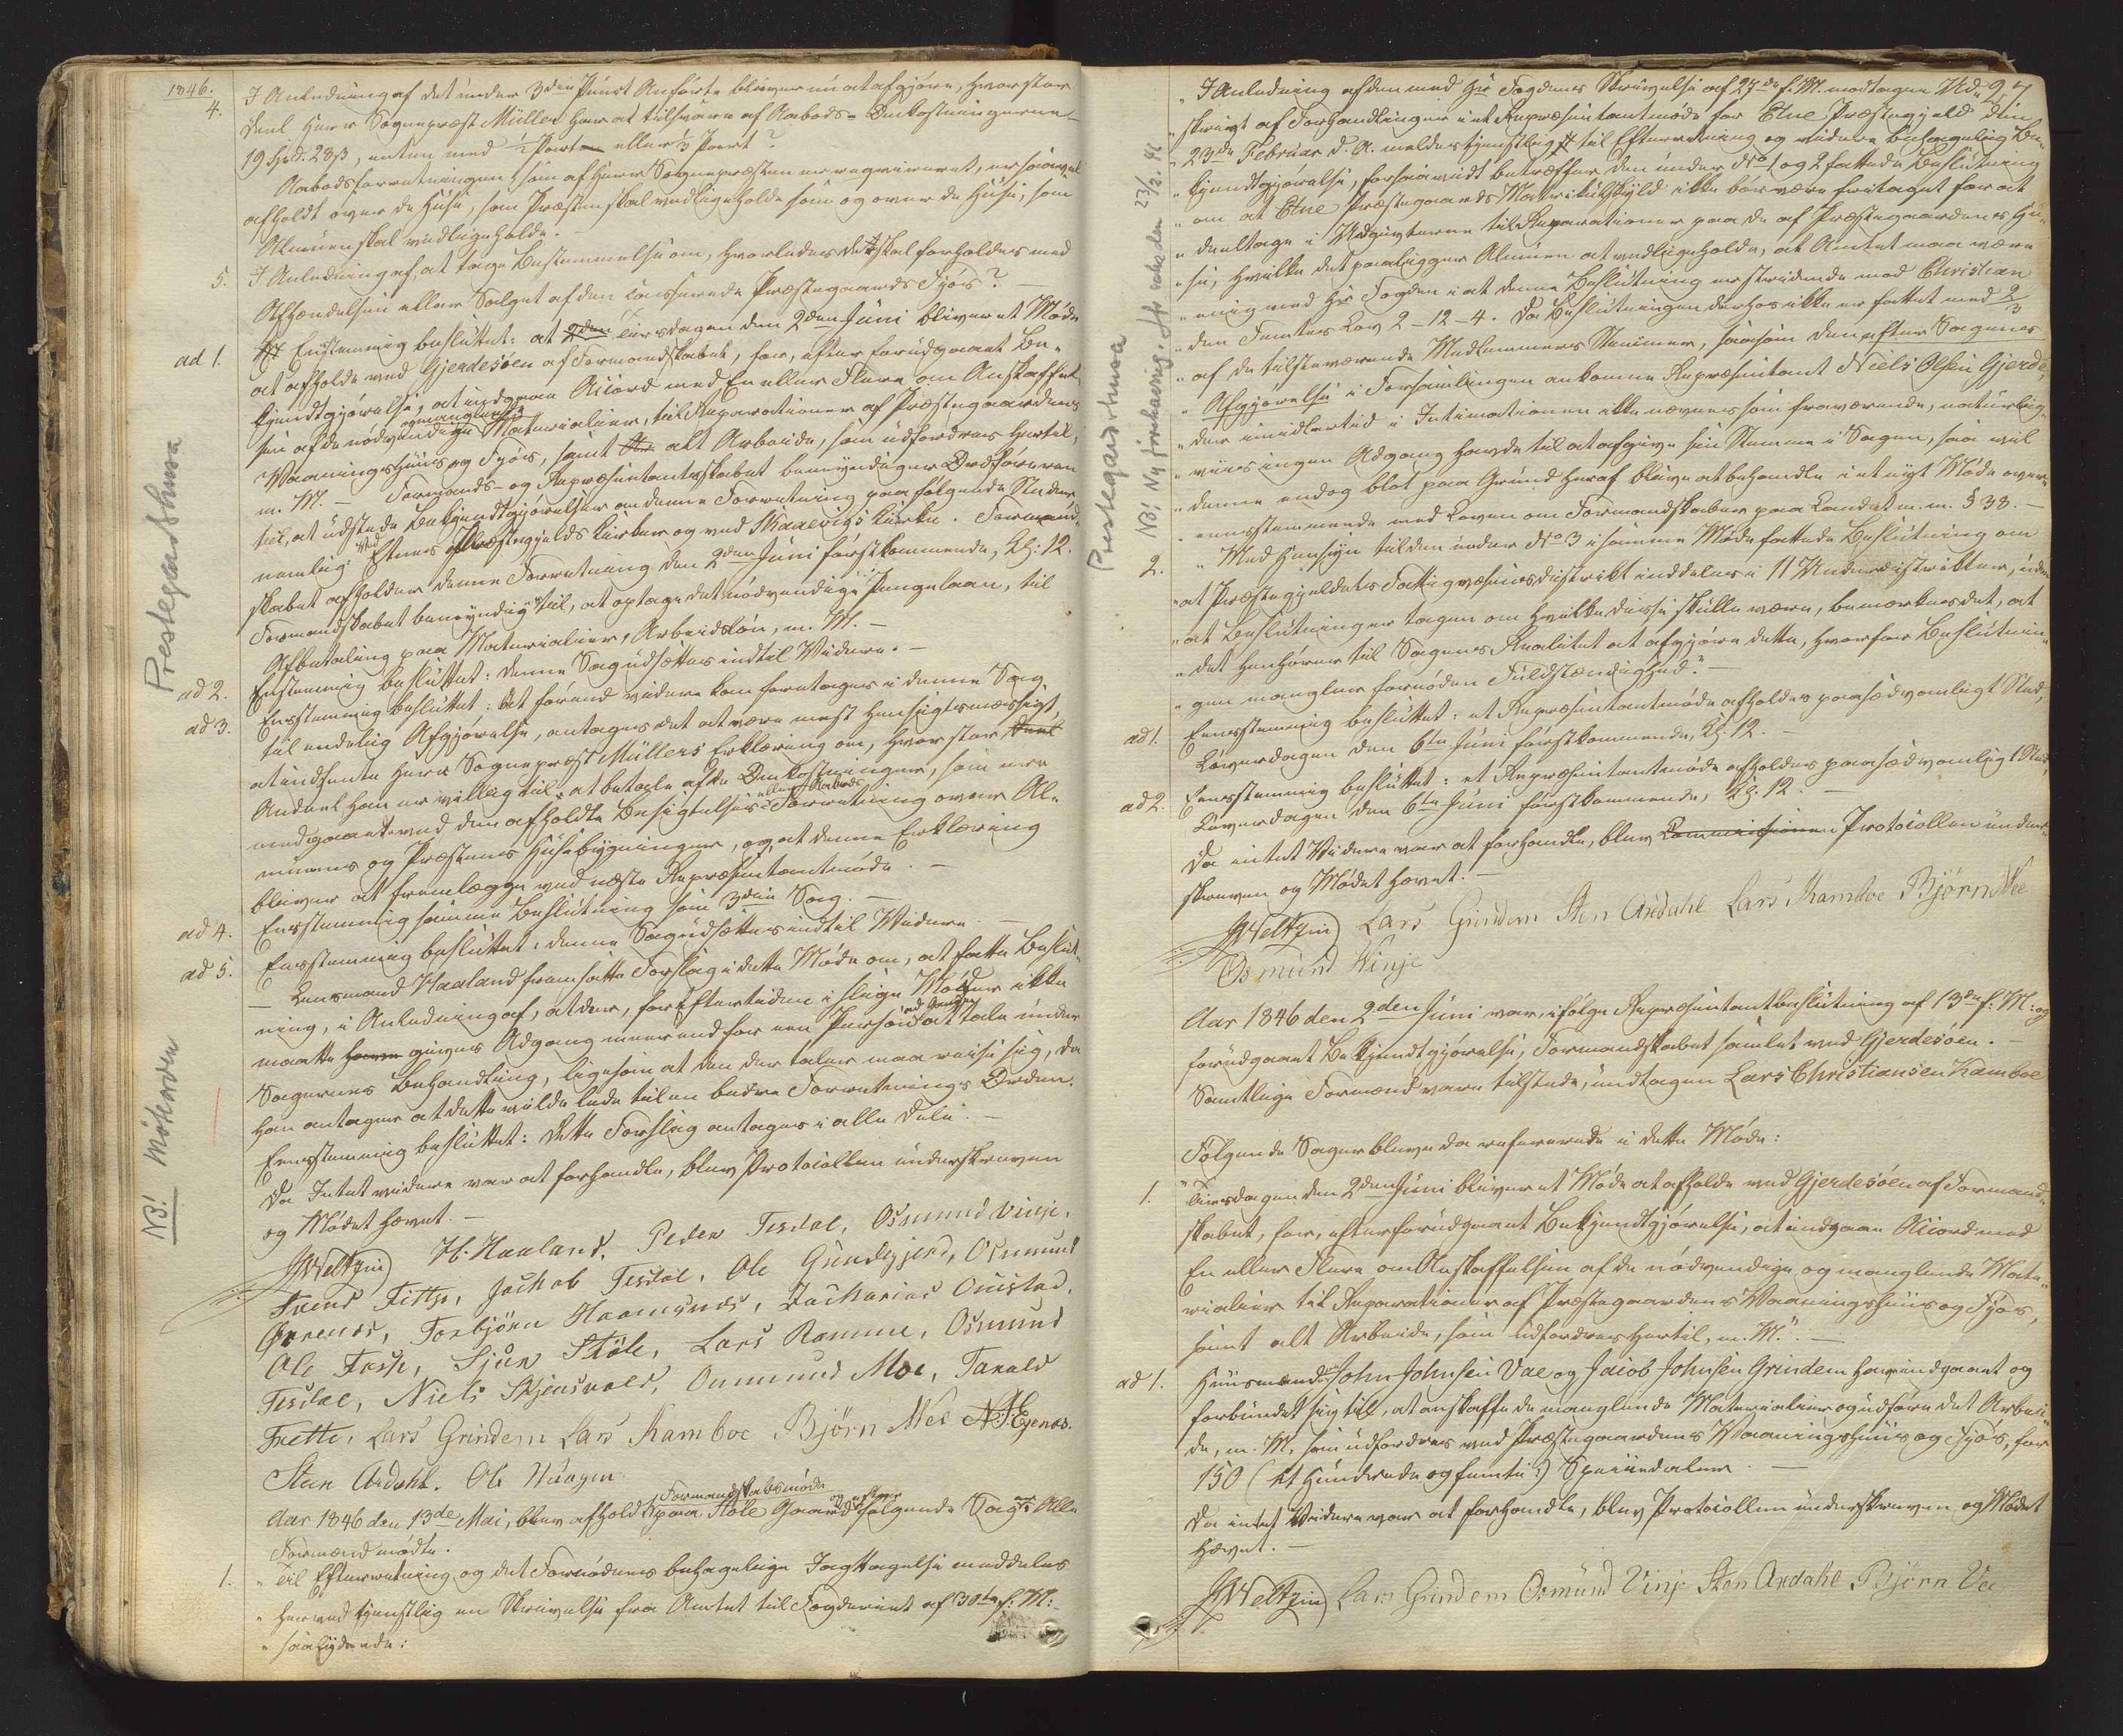 1846.
4. I Anledning af det under 3die Punct Anførte bliver nu at afgjøre, hvor stor
Deel Herr Sognepræst Müller har at tilsvare af Aabods-Omkostningerne
19 Spd. 28 ß, enten med ½ Part eller ⅓ Part?
Aabodsforretningen (som af Herr Sognepræsten er reqvireret, er saavel
afholdt over de Huse, som Præsten skal vedligeholde som og over de Huse, som
Almuen skal vedligeholde. —
5. I Anledning af, at tage Bestemmelse om, hvorledes det skal forholdes med
Afhændelsen eller Salget af den casserede Præstegaards Fjøs? —
ad 1. Eenstemmig besluttet: at Tirsdagen den 2den Juni bliver et Møde
at afholde ved Gjerdesøen af Formandskabet, for, efter forudgaaet Be-
kjendtgjørelse, at indgaae Accord med Een eller Flere om Anskaffel-
sen af de nødvendige og manglende Materialier, til Reparationer af Præstegaardens
Vaaningshuus og Fjøs, samt alt Arbeide, som udfordres hertil,
m. M. — Formands- og Repræsentantskabet bemyndiger Ordføreren
til, at udstede Bekjendtgjørelser om denne Forretning paa følgende Steder
nemlig: Ved Etnes Præstegjelds Kirker og ved Skaanevigs Kirke. Formand-
skabet afholder denne Forretning den 2den Juni førstkommende, Kl: 12.
Formandskabet bemyndiges til, at optage det nødvendige Pengelaan, til
Afbetaling paa Materialier, Arbeidsløn, m. M. —
ad 2. Eenstemmig besluttet: denne Sag udsættes indtil Videre. —
ad 3. Eenstemmig besluttet: At førend videre kan foretages i denne Sag
til endelig Afgjørelse, antages det at være mest hensigtsmæssigt,
at indhente Herr Sognepræst Müllers Erklæring om, hvor stor
Andeel han er villig til at betale af de Omkostninger, som ere
medgaaet ved den afholdte Besigtelses- eller Aabods Forretning over Al-
muens og Præstens Huusbygninger, og at denne Erklæring
bliver at fremlægge ved næste Repræsentantmøde. —
ad 4. Eenstemmig samme Beslutning som 3die Sag. —
ad 5. Eenstemmig besluttet: denne Sag udsættes indtil Videre. —
— Lensmand Haaland fremsatte Forslag i dette Møde om, at fatte Beslut-
ning, i Anledning af, at der, for Eftertiden i slige Møder ikke
maatte gives Adgang meer end for een Person ad Gangen at tale under
Sagernes Behandling, ligesom at den der taler maa reise sig, da
han antager at dette vilde lede til en bedre Forretnings Orden.
Eenstemmig besluttet: dette Forslag antages i alle Dele. —
Da Intet videre var at forhandle, blev Protocollen underskreven
og Mødet hævet. —
JWeltzin H. Haaland, Peder Tesdal, Osmund Vinje,
Trend Fittje, Jackob Tesdal, Ole Grindegjerd, Osmund
Ørrenes, Torbjørn Haamynes, Zackarias Onistad,
Ole Frette, Sjur Støle, Lars Ramme, Osmund
Tesdal, Niels Skjensvold, Ommund Moe, Tarald
Frette, Lars Grindem Lars Kamboe Bjørn Vee N. H. Egenæs.
Sten Ardahl. Ole Haugen
Aar 1846 den 13de Mai, blev afholdt Formandskabsmøde paa Støle Gaard følgende Sager Alle
Formænd mødte.
1. „Til Efterretning og det Fornødnes behagelige Iagttagelse meddeles
„herved tjenstlig en Skrivelse fra Amtet til Fogderiet af 30te f: M:
„saalydende:
Prestegardshusa
NB! Møteorden
27
„I Anledning af den med Hr Fogdens Skrivelse af 27de f. M. modtagne Ud-
„skrivt af Forhandlinger i et Repræsentantmøde for Etne Præstegjeld den
„23de Februar d. A. meldes tjenstligst til Efterretning og videre behagelig Be-
„kjendtgjørelse, forsaavidt betræffer den under No 1 og 2 fattede Beslutning
„om at Etne Præstegaards Matrikulskyld ikke bør være fritaget for at
„deeltage i Udgivterne til Reparationer paa de af Præstegaardenes Hu-
„se, hvilke det paaligger Almuen at vedligeholde, at Amtet maa være
„enig med Hr Fogden i at denne Beslutning er stridende mod Christian
„den Femtes Lov 2-12-4. Da Beslutningen derhos ikke er fattet med 2/3
„af de tilstedeværende Medlemmers Stemmer, saasom den efter Sagens
„Afgjørelse i Forsamlingen ankomne Repræsentant Niels Olsen Gjerde,
„der imidlertid i Intimationen ikke nævnes som fraværende, naturlig-
„viis ingen Adgang havde til at afgive sin Stemme i Sagen, saa vil
„denne endog blot paa Grund heraf blive at behandle i et nyt Møde over-
„eensstemmende med Loven om Formandskaber paa Landet m. m. § 38. —
2. „Med Hensyn til den under No 3 i samme Møde fattede Beslutning om
„at Præstegjeldets Fattigvæsensdistrikt inddeles i 11 Underdistrikter, uden
„at Beslutninger tages om hvilke disse skulle være, bemærkes det, at
„det henhører til Sagens Realitet at afgjøre dette, hvorfor Beslutnin-
„gen mangler fornøden Fuldstændighed." —
ad 1. Eensstemmig besluttet: et Repræsentantmøde afholdes paa sædvanligt Sted,
Løverdagen den 6te Juni førstkommende, Kl. 12. —
ad 2. Eensstemmig besluttet: et Repræsentantmøde afholdes paa sædvanligt Sted,
Løverdagen den 6te Juni førstkommende, Kl. 12. —
Da intet Videre var at forhandle, blev Protocollen under-
skreven og Mødet hævet. —
JWeltzin Lars Grindem Sten Ardahl Lars Kamboe Bjørn Vee
Osmund Vinje
Aar 1846 den 2den Juni var, ifølge Repræsentantbeslutning af 13de f. M: og
forudgaaet Bekjendtgjørelse, Formandskabet samlet ved Gjerdesøen. —
Samtlige Formænd vare tilstede, undtagen Lars Christiansen Kamboe
Følgende Sager bleve da refererede i dette Møde:
1. „Tirsdagen den 2den Juni bliver et Møde at afholde ved Gjerdesøen af Formand-
skabet, for, efter forudgaaet Bekjendtgjørelse, at indgaae Accord med
Een eller Flere om Anskaffelsen af de nødvendige og manglende Mate-
rialier til Reparationer af Præstegaardens Vaaningshuus og Fjøs,
samt alt Arbeide, som udfordres hertil, m. M." —
ad 1. Huusmænd John Johnsen Vae og Jacob Johnsen Grindem har indgaaet og
forbundet sig til, at anskaffe de manglende Materialier og udføre det Arbei-
de, m. M, som udfordres ved Præstegaardens Vaaningshuus og Fjøs, for
150 (et Hundrede og femti) Speciedaler. —
Da intet Videre var at forhandle, blev Protocollen underskreven og Mødet
hævet. —
JWeltzin Lars Grindem Osmund Vinje Sten Ardahl Bjørn Vee
Prestegardshusa